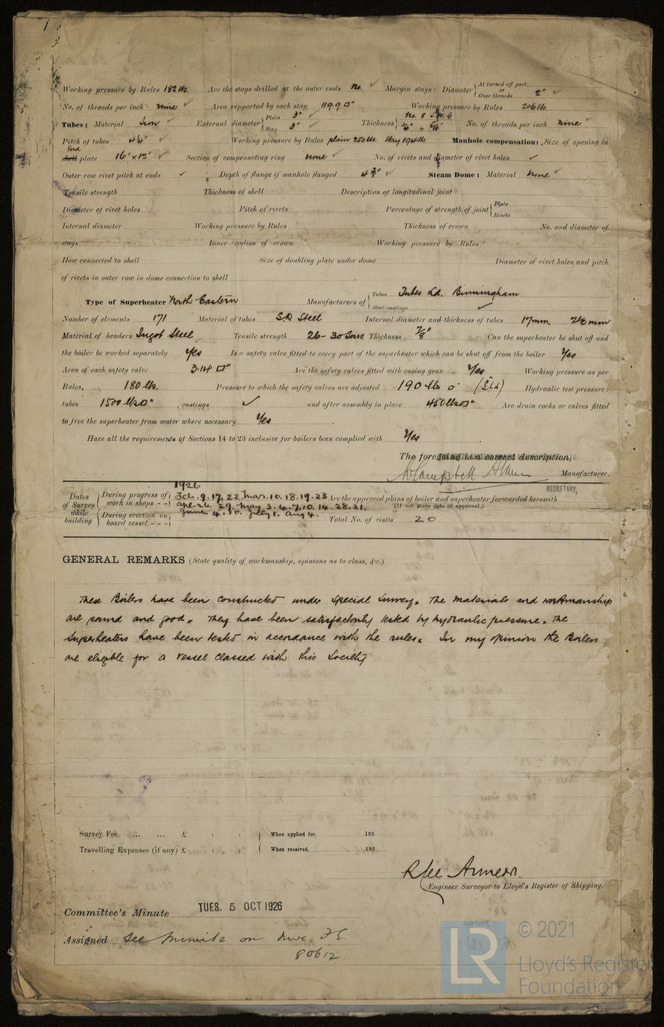 Working pressure by Rules 182 lbs. Are the stays drilled at the outer ends No. ✓ Margin stays: Diameter { At turned off part, or Over threads 2" ✓
No. of threads per inch nine ✓ Area supported by each stay 119.9 □" Working pressure by Rules 206 lb.
Tubes: Material Iron ✓ External diameter { Plain 3" Stay 3" ✓ Thickness { No. 8 S.W.G No. of threads per inch nine ✓
Pitch of tubes 4¼" ✓ Working pressure by Rules plain 250 lbs. Manhole compensation: Size of opening in
End plate 16" x 12" ✓ Section of compensating ring none ✓ No. of rivets and diameter of rivet holes ✓
Outer row rivet pitch at ends ✓ Depth of flange if manhole flanged ✓ Steam Dome: Material none ✓
Tensile strength Thickness of shell Description of longitudinal joint
Diameter of rivet holes Pitch of rivets Percentage of strength of joint { Plate Rivets
Internal diameter Working pressure by Rules Thickness of crown No. and diameter of
stays Inner radius of crown Working pressure by Rules
How connected to shell Size of doubling plate under dome Diameter of rivet holes and pitch
of rivets in outer row in dome connection to shell
Type of Superheater North Eastern Manufacturers of { Tubes Tubes Ld. Birmingham Steel castings ✓
Number of elements 171 Material of tubes S.D Steel Internal diameter and thickness of tubes 17mm, 2½ mm
Material of headers Ingot Steel Tensile strength 26-30 tons Thickness ⅞" Can the superheater be shut off and
the boiler be worked separately Yes Is a safety valve fitted to every part of the superheater which can be shut off from the boiler Yes
Area of each safety valve 3.14 □" Are the safety valves fitted with easing gear Yes Working pressure as per
Rules. 180 lbs. Pressure to which the safety valves are adjusted 190 lbs □" Hydraulic test pressure:
tubes 1500 lbs □" castings ✓ and after assembly in place 450 lbs □" Are drain cocks or valves fitted
to free the superheater from water where necessary Yes
Have all the requirements of Sections 14 to 23 inclusive for boilers been complied with Yes
The foregoing is a correct description,
Manufacturer.
SECRETARY.
Dates of Survey while building { During progress of work in shops - - 1926 Feb. 9. 17. 22 Mar. 10. 18. 19. 23 Are the approved plans of boiler and superheater forwarded herewith
Apl. 26. 29. May 3. 4. 7. 10. 14. 28. 31. (If not state date of approval.)
During erection on board vessel - - - June 4. 10. July 1. Aug 4. Total No. of visits 20
GENERAL REMARKS (State quality of workmanship, opinions as to class, &c.)
These Boilers have been constructed under Special Survey. The materials and workmanship
are sound and good. They have been satisfactorily tested by hydraulic pressure. The
Superheaters have been tested in accordance with the rules. In my opinion the Boilers
are eligible for a vessel classed with this Society
Survey Fee ... ... £ : : When applied for, 192
Travelling Expenses (if any) £ : : When received, 192
Engineer Surveyor to Lloyd's Register of Shipping.
Committee's Minute TUES. 5 OCT 1926
Assigned See Minute on Nwc. F.E.
80612
LR © 2021
Lloyd's Register
Foundation